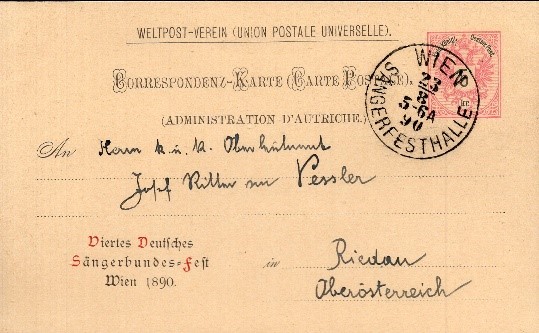 WELTPOST-VEREIN (UNION POSTALE UNIVERSELLE).
CORRESPONDENZ-KARTE (CARTE POSTALE).
(ADMINISTRATION D'AUTRICHE.)
WIEN
SÄNGERFESTHALLE
23
8
5-6A
90
An Herrn k. u. k.
Josef Ritter von Pessler
Viertes Deutsches
Sängerbundes-Fest
Wien 1890.
in Riedau
Oberösterreich